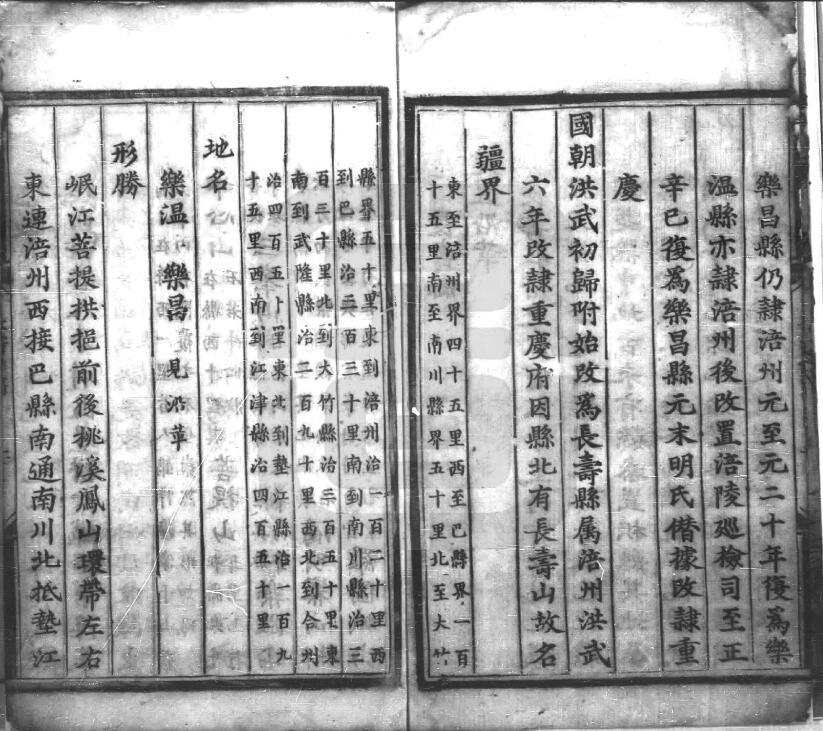 樂昌縣仍隷涪州元至元二十年復爲樂
温縣亦隷涪州後改置涪陵廵檢司至正
辛巳復爲樂昌縣元末明氏僣據改隷重
慶
國朝洪武初歸附始改爲長壽縣属涪州洪武
六年改隷重慶府因縣北有長壽山故名
疆界
東至涪州界四十五里西至巴縣界一百
十五里南至南川縣界五十里北至大竹
縣界五十里東到涪州治一百二十里西
到巴縣治三百三十里南到南川縣治三
百三十里北到大竹縣治三百五十里東
南到武隆縣治二百九十里西北到合州
治四百五十里東北到墊江縣治一百九
十五里西南到江津縣治四百五十里
地名
樂温 樂昌 見沿革
形勝
岷江菩提拱挹前後桃溪鳳山環帶左右
東連涪州西接巴縣南通南川北抵墊江